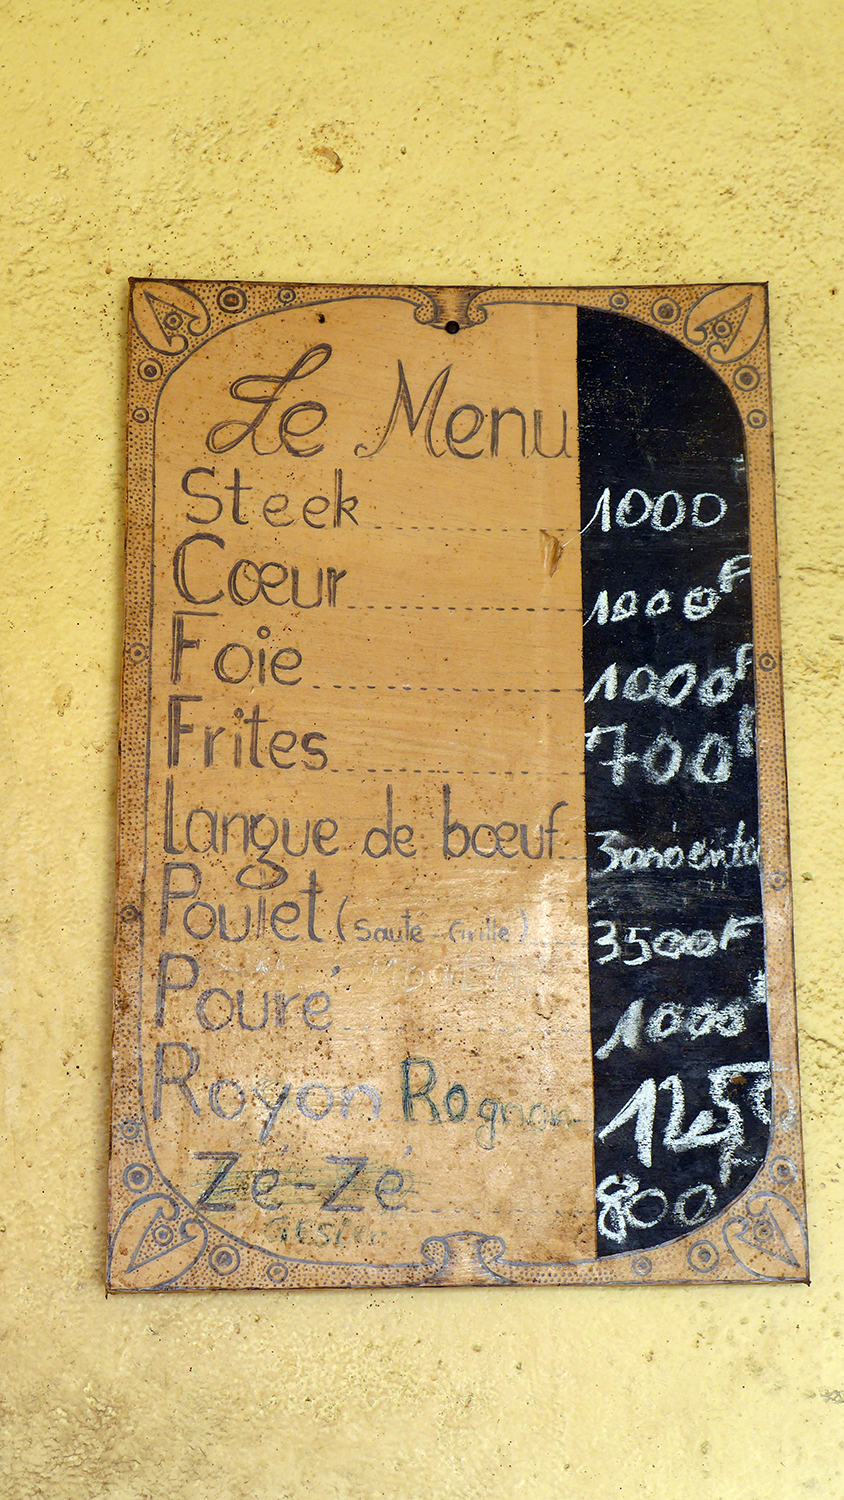 Le Menu
Steek 1000
Cœur 1000F
Foie 1000F
Frites 700F
Langue de bœuf
Poulet (Sauté - Grillé) 3500F
Pouré 1000F
Royon Rognon 1250F
Zé-Zé 800F
Gésier